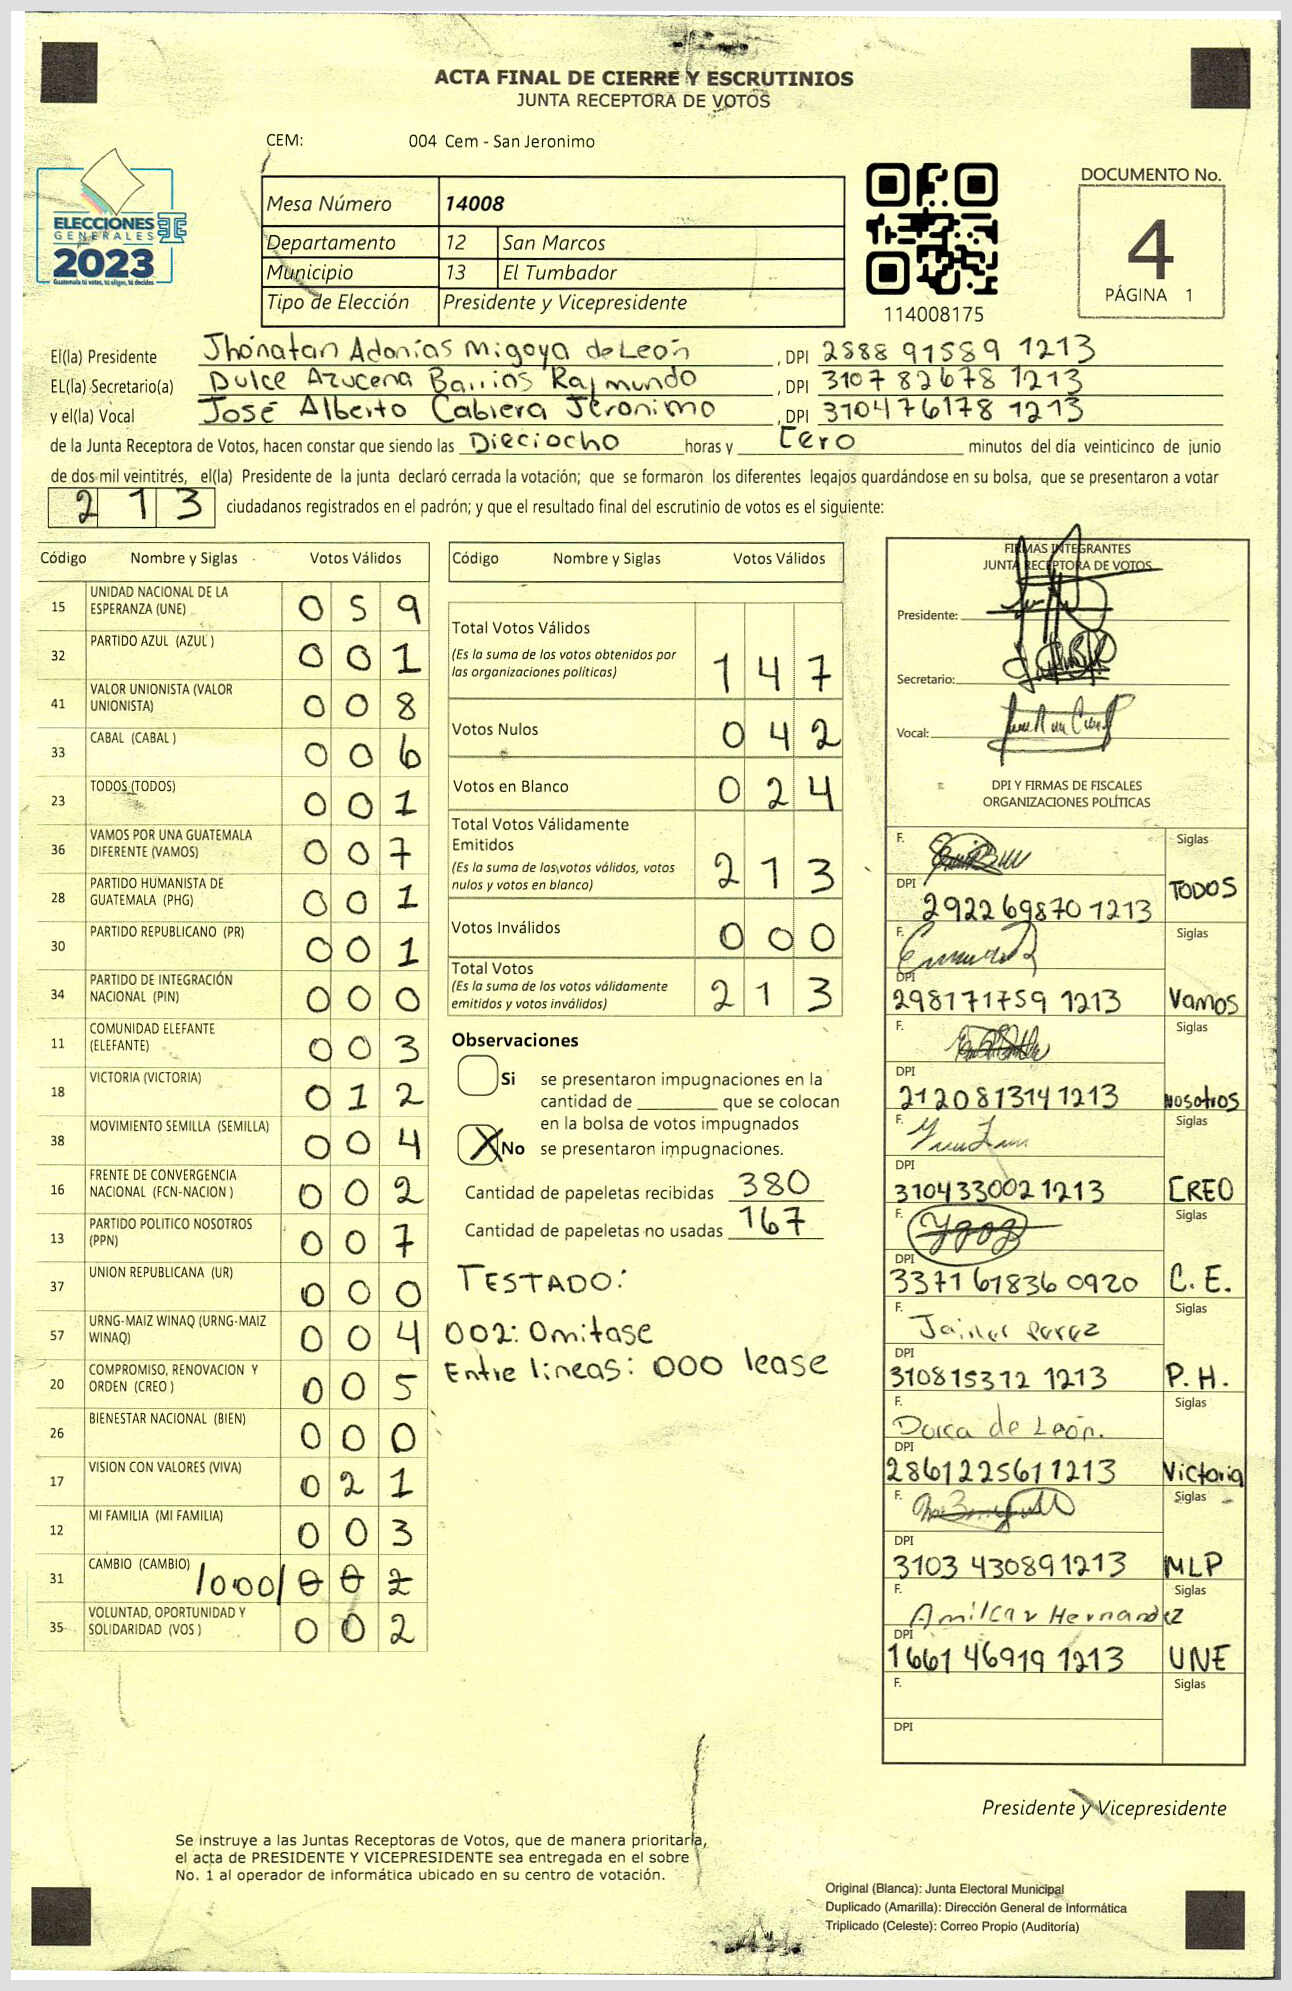 ACTA FINAL DE CIERRE Y ESCRUTINIOS
JUNTA RECEPTORA DE VOTOS
CEM: 004 Cem - San Jeronimo
ELECCIONES
GENERALES
2023
Guatemala tú votas, tú eliges, tú decides
Mesa Número 14008
Departamento 12 San Marcos
Municipio 13 El Tumbador
Tipo de Elección Presidente y Vicepresidente
114008175
DOCUMENTO No.
4
PÁGINA 1
El(la) Presidente Jhonatan Adonías Migoya de León , DPI 2888 91589 1213
EL(la) Secretario(a) Dulce Azucena Barrios Raymundo , DPI 3107 82678 1213
y el(la) Vocal José Alberto Cabrera Jeronimo , DPI 310476178 1213
de la Junta Receptora de Votos, hacen constar que siendo las Dieciocho horas y Cero minutos del día veinticinco de junio
de dos mil veintitrés, el(la) Presidente de la junta declaró cerrada la votación; que se formaron los diferentes legajos guardándose en su bolsa, que se presentaron a votar
213 ciudadanos registrados en el padrón; y que el resultado final del escrutinio de votos es el siguiente:
Código Nombre y Siglas Votos Válidos
15 UNIDAD NACIONAL DE LA ESPERANZA (UNE) 059
32 PARTIDO AZUL (AZUL ) 001
41 VALOR UNIONISTA (VALOR UNIONISTA) 008
33 CABAL (CABAL ) 006
23 TODOS (TODOS) 001
36 VAMOS POR UNA GUATEMALA DIFERENTE (VAMOS) 007
28 PARTIDO HUMANISTA DE GUATEMALA (PHG) 001
30 PARTIDO REPUBLICANO (PR) 001
34 PARTIDO DE INTEGRACIÓN NACIONAL (PIN) 000
11 COMUNIDAD ELEFANTE (ELEFANTE) 003
18 VICTORIA (VICTORIA) 012
38 MOVIMIENTO SEMILLA (SEMILLA) 004
16 FRENTE DE CONVERGENCIA NACIONAL (FCN-NACION ) 002
13 PARTIDO POLITICO NOSOTROS (PPN) 007
37 UNION REPUBLICANA (UR) 000
57 URNG-MAIZ WINAQ (URNG-MAIZ WINAQ) 004
20 COMPROMISO, RENOVACION Y ORDEN (CREO ) 005
26 BIENESTAR NACIONAL (BIEN) 000
17 VISION CON VALORES (VIVA) 021
12 MI FAMILIA (MI FAMILIA) 003
31 CAMBIO (CAMBIO) /000/ 002
35 VOLUNTAD, OPORTUNIDAD Y SOLIDARIDAD (VOS ) 002
Código Nombre y Siglas Votos Válidos
Total Votos Válidos 147
(Es la suma de los votos obtenidos por
las organizaciones políticas)
Votos Nulos 042
Votos en Blanco 024
Total Votos Válidamente
Emitidos 213
(Es la suma de los votos válidos, votos
nulos y votos en blanco)
Votos Inválidos 000
Total Votos 213
(Es la suma de los votos válidamente
emitidos y votos inválidos)
Observaciones
Si se presentaron impugnaciones en la
cantidad de ________ que se colocan
en la bolsa de votos impugnados
X No se presentaron impugnaciones.
Cantidad de papeletas recibidas 380
Cantidad de papeletas no usadas 167
TESTADO:
002: Omitase
Entre lineas: 000 lease
FIRMAS INTEGRANTES
JUNTA RECEPTORA DE VOTOS
Presidente:
Secretario:
Vocal:
DPI Y FIRMAS DE FISCALES
ORGANIZACIONES POLÍTICAS
F. Siglas
DPI 2922 69870 1213 TODOS
F. Siglas
DPI 298171759 1213 Vamos
F. Siglas
DPI 212081314 1213 Nosotros
F. Siglas
DPI 310433002 1213 CREO
F. Siglas
DPI 3371 61836 0920 C. E.
F. Siglas
DPI 310815312 1213 P. H.
F. Dorca de León. Siglas
DPI 286122561 1213 Victoria
F. Siglas
DPI 3103 43089 1213 MLP
F. Amilcar Hernandez Siglas
DPI 1661 46919 1213 UNE
F. Siglas
DPI
Presidente y Vicepresidente
Se instruye a las Juntas Receptoras de Votos, que de manera prioritaria,
el acta de PRESIDENTE Y VICEPRESIDENTE sea entregada en el sobre
No. 1 al operador de informática ubicado en su centro de votación.
Original (Blanca): Junta Electoral Municipal
Duplicado (Amarilla): Dirección General de Informática
Triplicado (Celeste): Correo Propio (Auditoría)